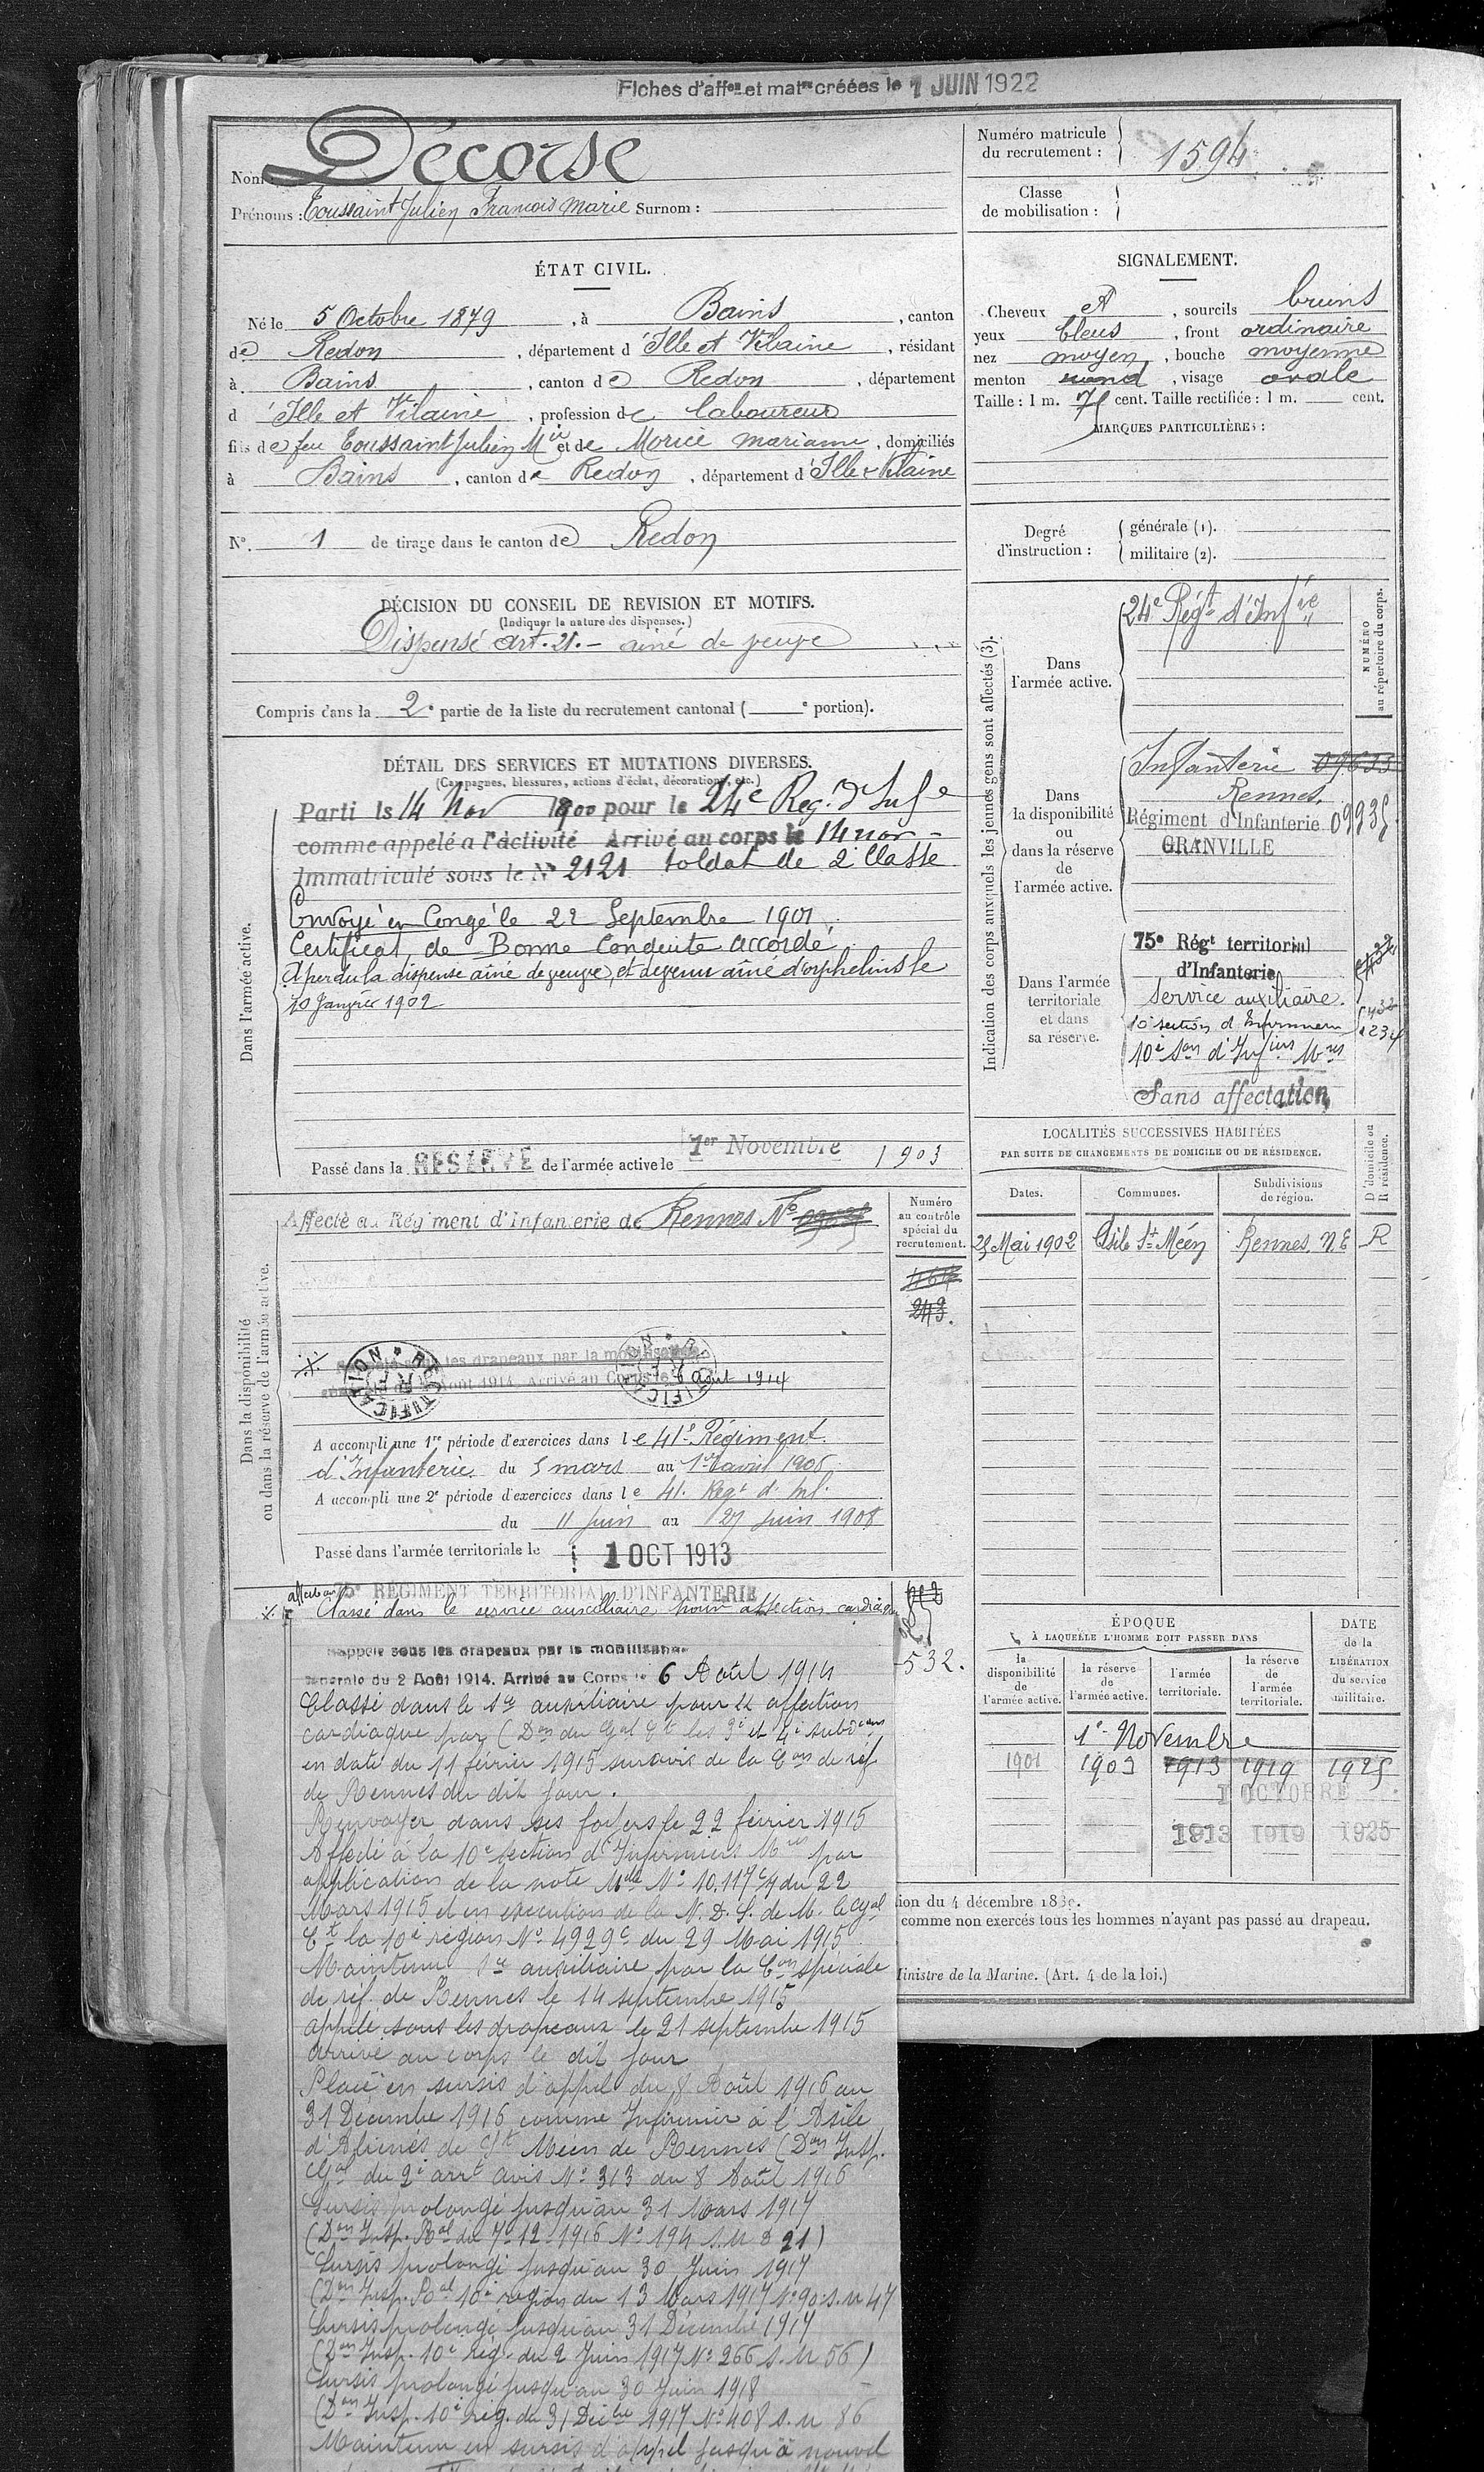 Fiches d'affon et matre créées le 1 JUIN 1922
Nom : Décorse
Prénoms : Toussaint Julien François Marie Surnom :
Numéro matricule du recrutement : 1594
Classe de mobilisation :
ÉTAT CIVIL.
Né le 5 Octobre 1879, à Bains, canton
de Redon, département d'Ille et Vilaine, résidant
à Bains, canton de Redon, département
d'Ille et Vilaine, profession de laboureur
fils de feu Toussaint Julien Mie et de Morice Marianne, domiciliés
à Bains, canton de Redon, département d'Ille & Vilaine
N°. 1 de tirage dans le canton de Redon
SIGNALEMENT.
Cheveux et, sourcils bruns
yeux bleus, front ordinaire
nez moyen, bouche moyenne
menton rond, visage ovale
Taille : 1 m. 75 cent. Taille rectifiée : 1 m. cent.
MARQUES PARTICULIÈRES :
Degré d'instruction :
générale (1).
militaire (2).
DÉCISION DU CONSEIL DE REVISION ET MOTIFS.
(Indiquer la nature des dispenses.)
Dispensé art. 21. - ainé de veuve
Compris dans la 2e partie de la liste du recrutement cantonal ( e portion).
DÉTAIL DES SERVICES ET MUTATIONS DIVERSES.
(Campagnes, blessures, actions d'éclat, décorations, etc.)
Dans l'armée active.
Parti le 14 Nov 1900 pour le 24e Reg. d'Infe
comme appelé a l'activité Arrivé au corps le 14 nov -
Immatriculé sous le N° 2121 soldat de 2e Classe
Envoyé en Congé le 22 Septembre 1901.
Certificat de Bonne Conduite accordé
A perdu la dispense ainé de veuve, et devenu ainé d'orphelins le
20 Janvier 1902
Passé dans la RESERVE de l'armée active le 1er Novembre 1903
Indication des corps auxquels les jeunes gens sont affectés (3).
NUMÉRO au répertoire du corps.
Dans l'armée active.
24e Régt d'Infrie
Dans la disponibilité ou dans la réserve de l'armée active.
Infanterie
Rennes.
Régiment d'Infanterie 09935
GRANVILLE
Dans l'armée territoriale et dans sa réserve.
75e Régt territorial
d'Infanterie
Service auxiliaire.
10e section d'Infirmiers
10e Son d'Infiers Mres
Sans affectation
LOCALITÉS SUCCESSIVES HABITÉES
PAR SUITE DE CHANGEMENTS DE DOMICILE OU DE RÉSIDENCE.
Dates. Communes. Subdivisions de région. D domicile ou R résidence.
25 Mai 1902 Asile St Méen Rennes N.E R
Dans la disponibilité ou dans la réserve de l'armée active.
Affecté au Régiment d'Infanterie de Rennes N°
Numéro au contrôle spécial du recrutement.
464
243.
les drapeaux par la mobilisation
Août 1914. Arrivé au Corps le 6 août 1914
RECTIFICATION
RECTIFICATION
A accompli une 1re période d'exercices dans le 41e Régiment
d'Infanterie du 5 mars au 1er avril 1906
A accompli une 2e période d'exercices dans le 41. Régt d'Inf.
du 11 juin au 27 juin 1908
Passé dans l'armée territoriale le 1 OCT 1913
affecté au 75e RÉGIMENT TERRITORIAL D'INFANTERIE
Classé dans le service auxiliaire pour affection cardiaque
532.
Rappelé sous les drapeaux par la mobilisation
générale du 2 Août 1914. Arrivé au Corps le 6 Août 1914
Classé dans le Sce auxiliaire pour affection
cardiaque par (Don du Gal Ct les 3e et 4e subdions
en date du 11 février 1915 sur avis de la Con de réf
de Rennes du dit jour.
Renvoyer dans ses foyers le 22 février 1915
Affecté à la 10e section d'Infirmiers Mres par
application de la note Mlle N° 10.117 c/7 du 22
Mars 1915 et en exécution de la N. D. S. de M. le Gyal
Ct la 10e région N° 4929c du 29 Mai 1915
Maintenu Sce auxiliaire par la Con spéciale
de réf. de Rennes le 14 septembre 1915
appelé sous les drapeaux le 21 septembre 1915
arrivé au corps le dit jour
Placé en sursis d'appel du 8 Août 1916 au
31 Décembre 1916 comme Infirmier à l'Asile
d'Aliénés de St Méen de Rennes (Don Insp.
Gal du 2e arrt avis N° 313 du 8 Août 1916
Sursis prolongé jusqu'au 31 Mars 1917
(Don Insp. Ral du 7-12-1916 N° 194 s. n° 21)
Sursis prolongé jusqu'au 30 Juin 1917
(Don Insp. Ral 10e région du 13 Mars 1917 N° 90 s. n 47
Sursis prolongé jusqu'au 31 Décembre 1917
(Don Insp. 10e rég. du 2 Juin 1917 N° 266 s. n 56)
Sursis prolongé jusqu'au 30 Juin 1918
(Don Insp. 10e rég. du 31 Décbre 1917 N° 408 s. n 86
Maintenu en sursis d'appel jusqu'à nouvel
ÉPOQUE
À LAQUELLE L'HOMME DOIT PASSER DANS
la disponibilité de l'armée active.
la réserve de l'armée active.
l'armée territoriale.
la réserve de l'armée territoriale.
DATE de la LIBÉRATION du service militaire.
1er Novembre
1901 1903 1913 1919 1925
1 OCTOBRE
1913 1919 1925
tion du 4 décembre 1889.
comme non exercés tous les hommes n'ayant pas passé au drapeau.
Ministre de la Marine. (Art. 4 de la loi.)